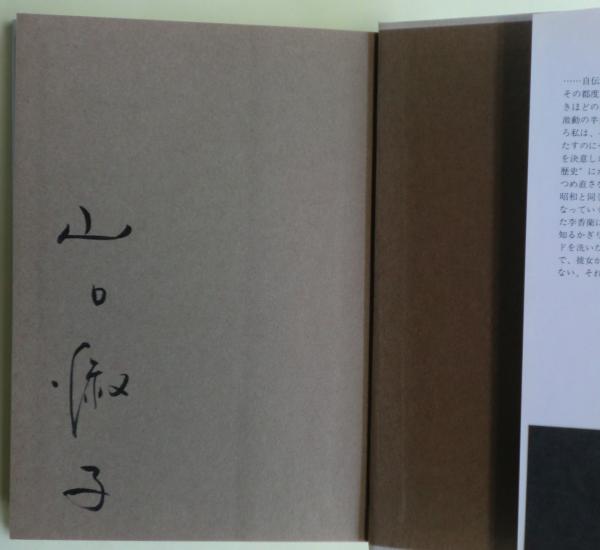 山口淑子
……自伝
その都度
きほどの
激動の半
ろ私は、
たすのに
を決意し
歴史”に
つめ直さ
昭和と同
なってい
た李香蘭に
知るかぎり
ドを洗いた
で、彼女が
ない。それ